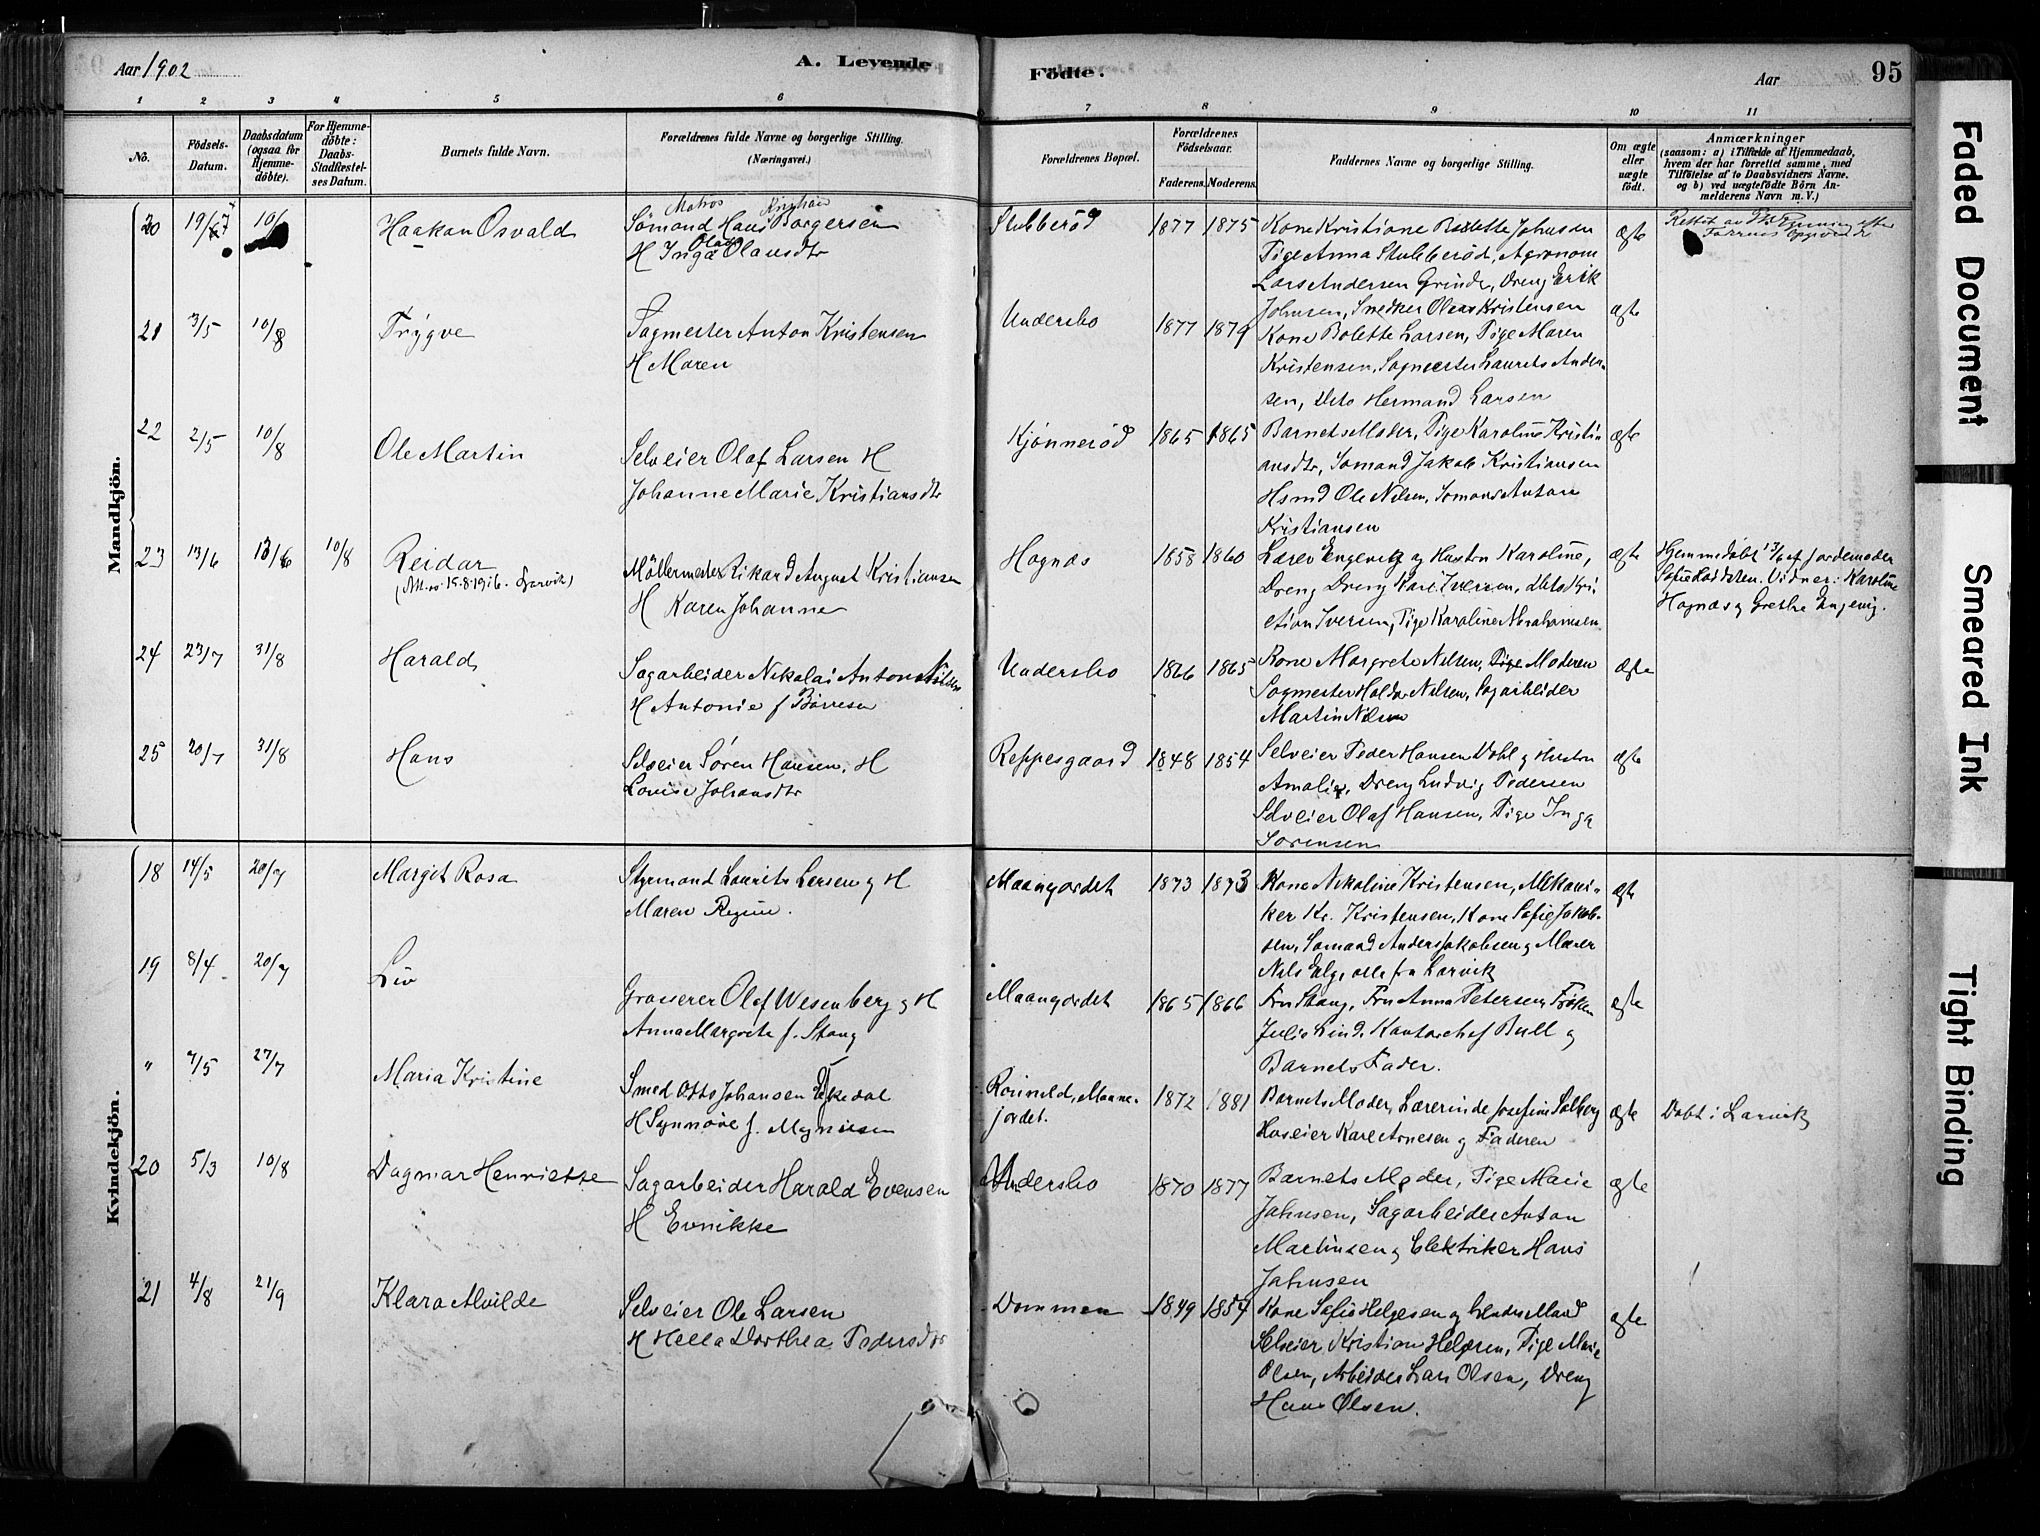 Aar 1902
A. Levende
Födte.
Aar
95
1 2 3 4 5 6 7 8 9 10 11
No.
Födsels-Datum.
Daabsdatum (ogsaa for Hjemmedöbte).
For Hjemmedöbte: Daabs-Stadfæstelses Datum.
Barnets fulde Navn.
Forældrenes fulde Navne og borgerlige Stilling.
(Næringsvei.)
Forældrenes Bopæl.
Forældrenes Födselsaar.
Faderens. Moderens.
Faddernes Navne og borgerlige Stilling.
Om ægte eller uægte födt.
Anmærkninger
(saasom: a) i Tilfælde af Hjemmedaab, hvem der har forrettet samme, med Tilföielse af to Daabsvidners Navne. og b) ved uægtefödte Börn Anmelderens Navn m. V.)
Mandkjön.
20 19/7 10/ Haakan Osvald
Matros Kristian
Sømand Hans Borgersen
H Inga Olava Olausdtr
Stubberød 1877 1875
Kone Kristiane Johnsen
Pige Anna Stubberød, Agronom
Lars Andersen Grinde, Dreng Erik
Johnsen, Snedker Olaus Kristensen
ægte
21 3/5 10/8 Trygve
Sagmester Anton Kristensen
H Maren
Undersbo 1877 1879
Kone Bolette Larsen, Pige Maren
Kristensen, Sagmester Laurits Andersen, dito Hermand Larsen
ægte
22 2/5 10/8 Ole Martin
Selveier Olaf Larsen H
Johanne Marie Kristiansdtr
Kjønnerød 1865 1865
Barnets Moder, Pige Karoline Kristiansdtr, Sømand Jakob Kristiansen
Hsmd Ole Nilsen, Sømand Anton
Kristiansen
ægte
23 13/6 13/6 10/8 Reidar
Møllermester Rikard August Kristiansen
H Karen Johanne
Hognæs 1858 1860
Lærer Engevig og Hustru Karoline,
Dreng Dreng Kare Iversen,
Iversen, Pige Karoline Abrahamsen
ægte
Hjemmedøbt 13/6 af Jordemoder
Vidner: Karoline
Hognæs og Grethe Engevig.
24 23/7 31/8 Harald
Sagarbeider Nikolai Anton Nilsen
H Antonie f Børresen
Undersbo 1866 1865
Kone Margrete Nilsen, Moderen
Sagmester Haldor Nilsen, Sagarbeider
Martin Nilsen
ægte
25 20/7 31/8 Hans
Selveier Søren Hansen, H
Lovise Johansdtr
Reppesgaard 1848 1854
Selveier Peder Hansen Dahl og Hustru
Amalie, Dreng Ludvig Pedersen
Selveier Olaf Hansen, Pige Inga
Sørensen
ægte
Kvindekjön.
18 14/5 20/7 Margit Rosa
Styrmand Laurits Larsen og H
Maren Regine.
Maanejordet 1873 1873
Kone Nikoline Kristensen, Mekaniker Kr. Kristensen, Kone Sofie Jakobsen, Sømand Anders Jakobsen og Murer
Nils Elg, alle fra Larvik
ægte
19 8/4 20/7 Liv
Grosserer Olaf Wesenberg og H
Anna Margrete f. Stang
Maanejordet 1865 1866
Fru Stang, Fru Anna Petersen, Frøken
Julie Lind, Kontorchef Bull og
Barnets Fader.
ægte
" 7/5 27/7 Maria Kristine
Smed Otto Johansen Ekedal
H Synnøve f. Magnussen
Maanejordet. 1872 1881
Barnets Moder, Lærerinde Josefine Solberg
Huseier Karl Arnesen og Faderen
ægte
Døbt i Larvik
20 5/3 10/8 Dagmar Henriette
Sagarbeider Harald Evensen
H Evnikke
Undersbo 1870 1877
Barnets Moder, Pige Marie
Johnsen, Sagarbeider Anton
Martinsen og Elektriker Hans
Johnsen
ægte
21 4/8 21/9 Klara Alvilde
Selveier Ole Larsen
H Hella Dorthea Pedersdtr
Dammen 1849 1854
Kone Sofie Helgesen og hendes Mand
Selveier Kristian Helgesen, Pige Marie
Olsen, Arbeider Lars Olsen, Dreng
Hans Olsen.
ægte
Faded Document
Smeared Ink
Tight Binding